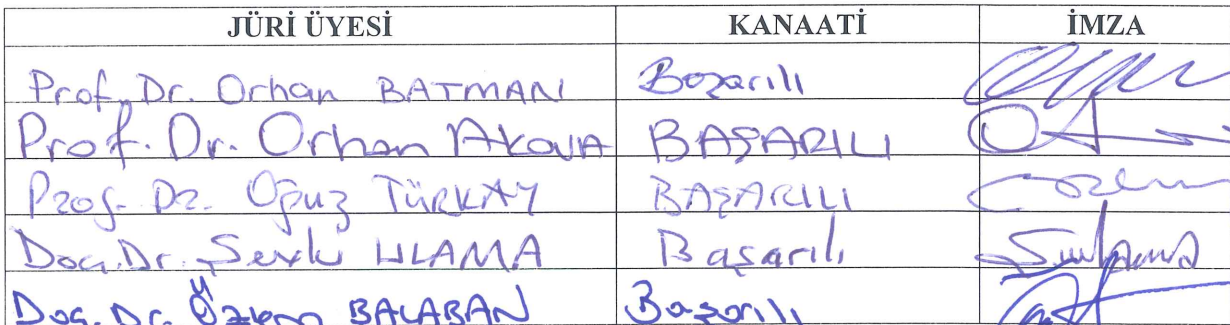 JÜRİ ÜYESİ KANAATİ İMZA
Prof. Dr. Orhan BATMAN Başarılı
Prof. Dr. Orhan AKOVA BAŞARILI
Prof. Dr. Oğuz TÜRKAY BAŞARILI
Doç. Dr. Şevki ULAMA Başarılı
Doç. Dr. Özlem BALABAN Başarılı